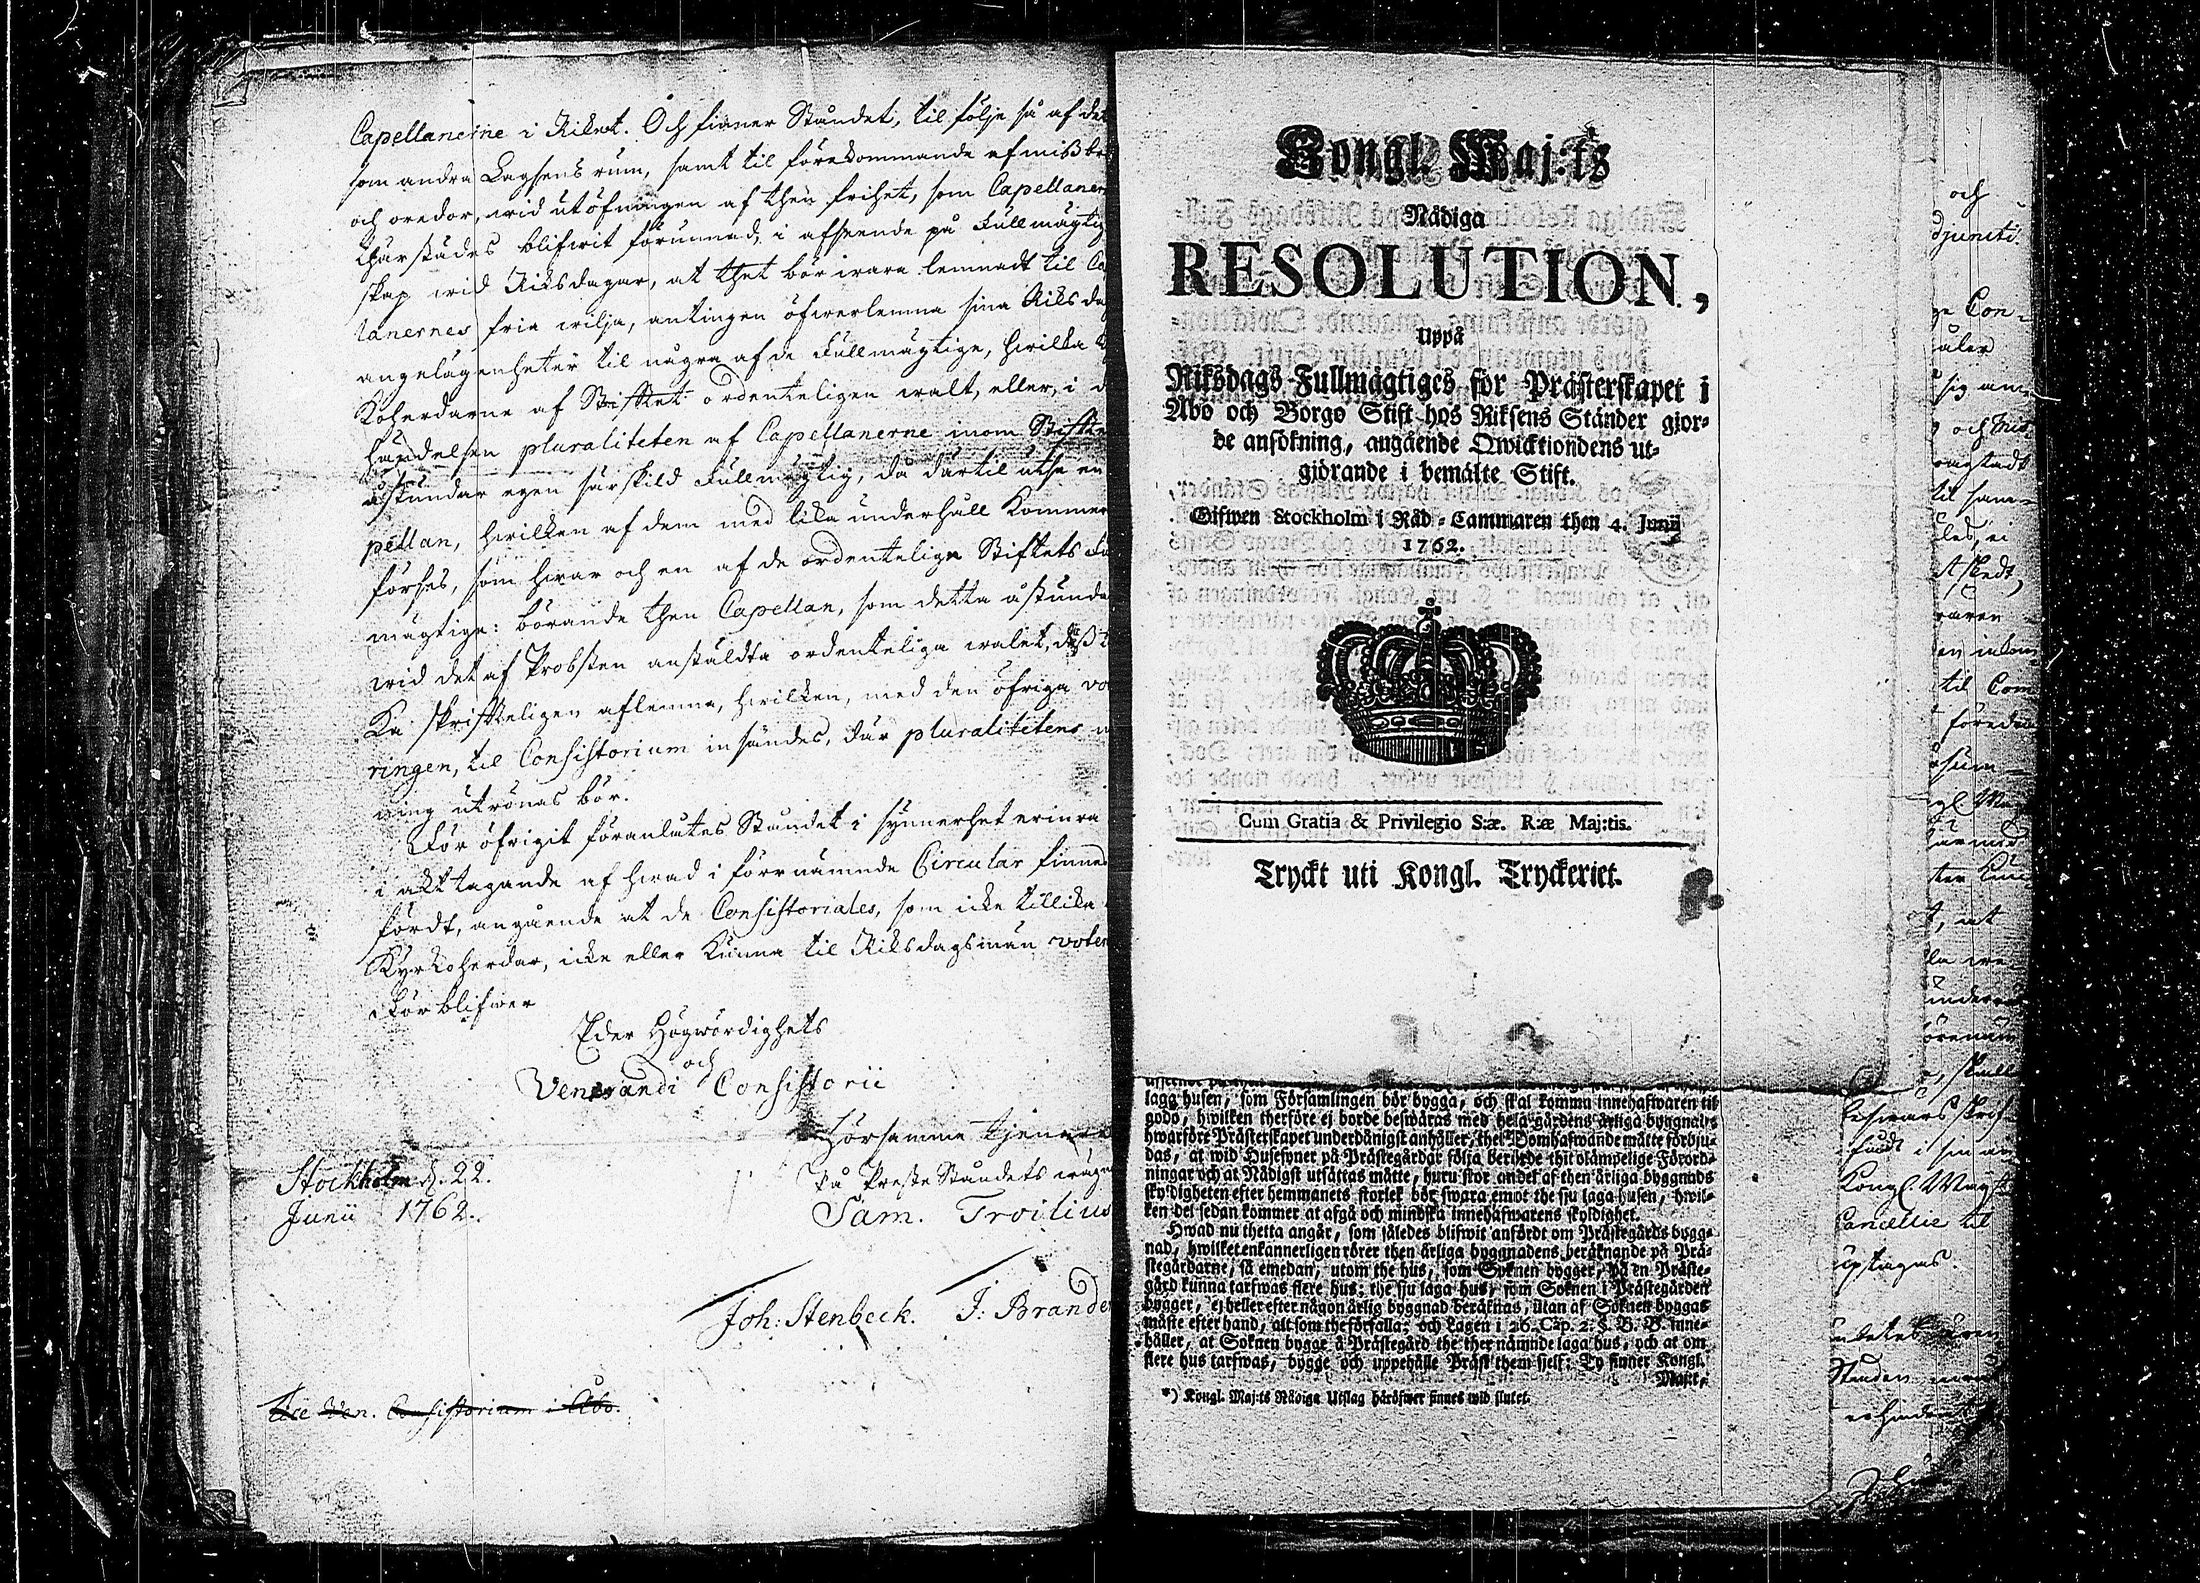 Capellanerne i Riket. Och finner Ståndet, til följe så af det
som andra Lagsens rum, samt til förekommande af missbr
och oredor, wid utöfningen af then frihet, som Capellaner
thärstädes blifwit förunnad, i afseende på Fullmägtig
skap wid Riksdagar, at thet bör wara lemnadt til Ca
lanernes fria wilja, antingen öfwerlemna sina Riksda
angelägenheter til några af de Fullmägtige, hwilka K
koherdarne af Stiftet ordenteligen walt, eller, i d
händelsen pluraliteten af Capellanerne inom Stifte
åstundar egen särskild Fullmägtig, då därtil utse en
pellan, hwilken af dem med lika underhåll kommer
förses, som hwar och en af de ordentelige Stiftets Fu
mägtige: börande then Capellan, som detta åstunda
wid det af Probsten anstäldta ordenteliga walet,
skrifteligen aflemna, hwilken, med den öfriga vo
ringen, til Consistorium insändes, där pluralitetens
ning utrönas bör.
För öfrigit föranlåtes Ståndet i synnerhet erinra
i akttagande af hwad i förrnämnde Circulair finnes
fördt, angående at de Consistoriales, som icke tillika
Kyrkoherdar, icke eller kunna til Riksdagsmän voter
Förblifwer
Eder Högwördighets
och
Venerandi Consistorii
Hörsamme tjenare
På Preste Ståndets wägn
Stockholm d. 22.
Junii 1762.
Sam. Troilius
Joh: Stenbeck. J: Brande
Til Ven. Consistorium i Åbo.
Kongl. Maj:ts
Nådiga
RESOLUTION,
Uppå
Riksdags-Fullmägtiges för Prästerskapet i
Åbo och Borgo Stift hos Riksens Ständer gjor-
de ansökning, angående Qwicktiondens ut-
görande i bemälte Stift.
Gifwen Stockholm i Råd-Cammaren then 4. Junii
1762.
Cum Gratia & Privilegio S:æ. R:æ Maj:tis.
Tryckt uti Kongl. Tryckeriet.
laga husen, som Församlingen bör bygga, och skal komma innehafwaren til
godo, hwilken therföre ej borde beswäras med hela gårdens årliga byggnad;
hwarföre Prästerskapet underdånigst anhåller, thet Domhafwande måtte förbju-
das, at wid Husesyner på Prästegårdar följa berörde thit olämpelige Förord-
ningar och at Nådigst utsättas måtte, huru stor andel af then årliga byggnads
skyldigheten efter hemmanets storlek bör swara emot the sju laga husen, hwil-
ken del sedan kommer at afgå och mindska innehafwarens skyldighet.
Hwad nu thetta angår, som således blifwit anfördt om Prästegårds bygg-
nad, hwilket enkannerligen rörer then årliga byggnadens beräknande på Prä-
stegårdarne; så emedan, utom the hus, som Soknen bygger, på en Präste-
gård kunna tarfwas flere hus; the sju laga hus, som Soknen i Prästegården
bygger, ej heller efter någon årlig byggnad beräknas, utan af Soknen byggas
måste efter hand, alt som the förfalla; och Lagen i 26. Cap. 2. §. B. B. inne-
håller, at Soknen bygge å Prästegård the ther nämnde laga hus, och at om
flere hus tarfwas, bygge och uppehålle Präst them sjelf; Ty finner Kongl.
Maj:t,
*) Kongl. Maj:ts Nådiga Utslag häröfwer finnes wid slutet.
och
djuncti
Con-
åler
sig
och
til sam-
ei
skedt,
til Com
föredra
, at
, skulle
Beswärs skrif
Kongl. Mayst
Cancellie til
uptagas.
Standen